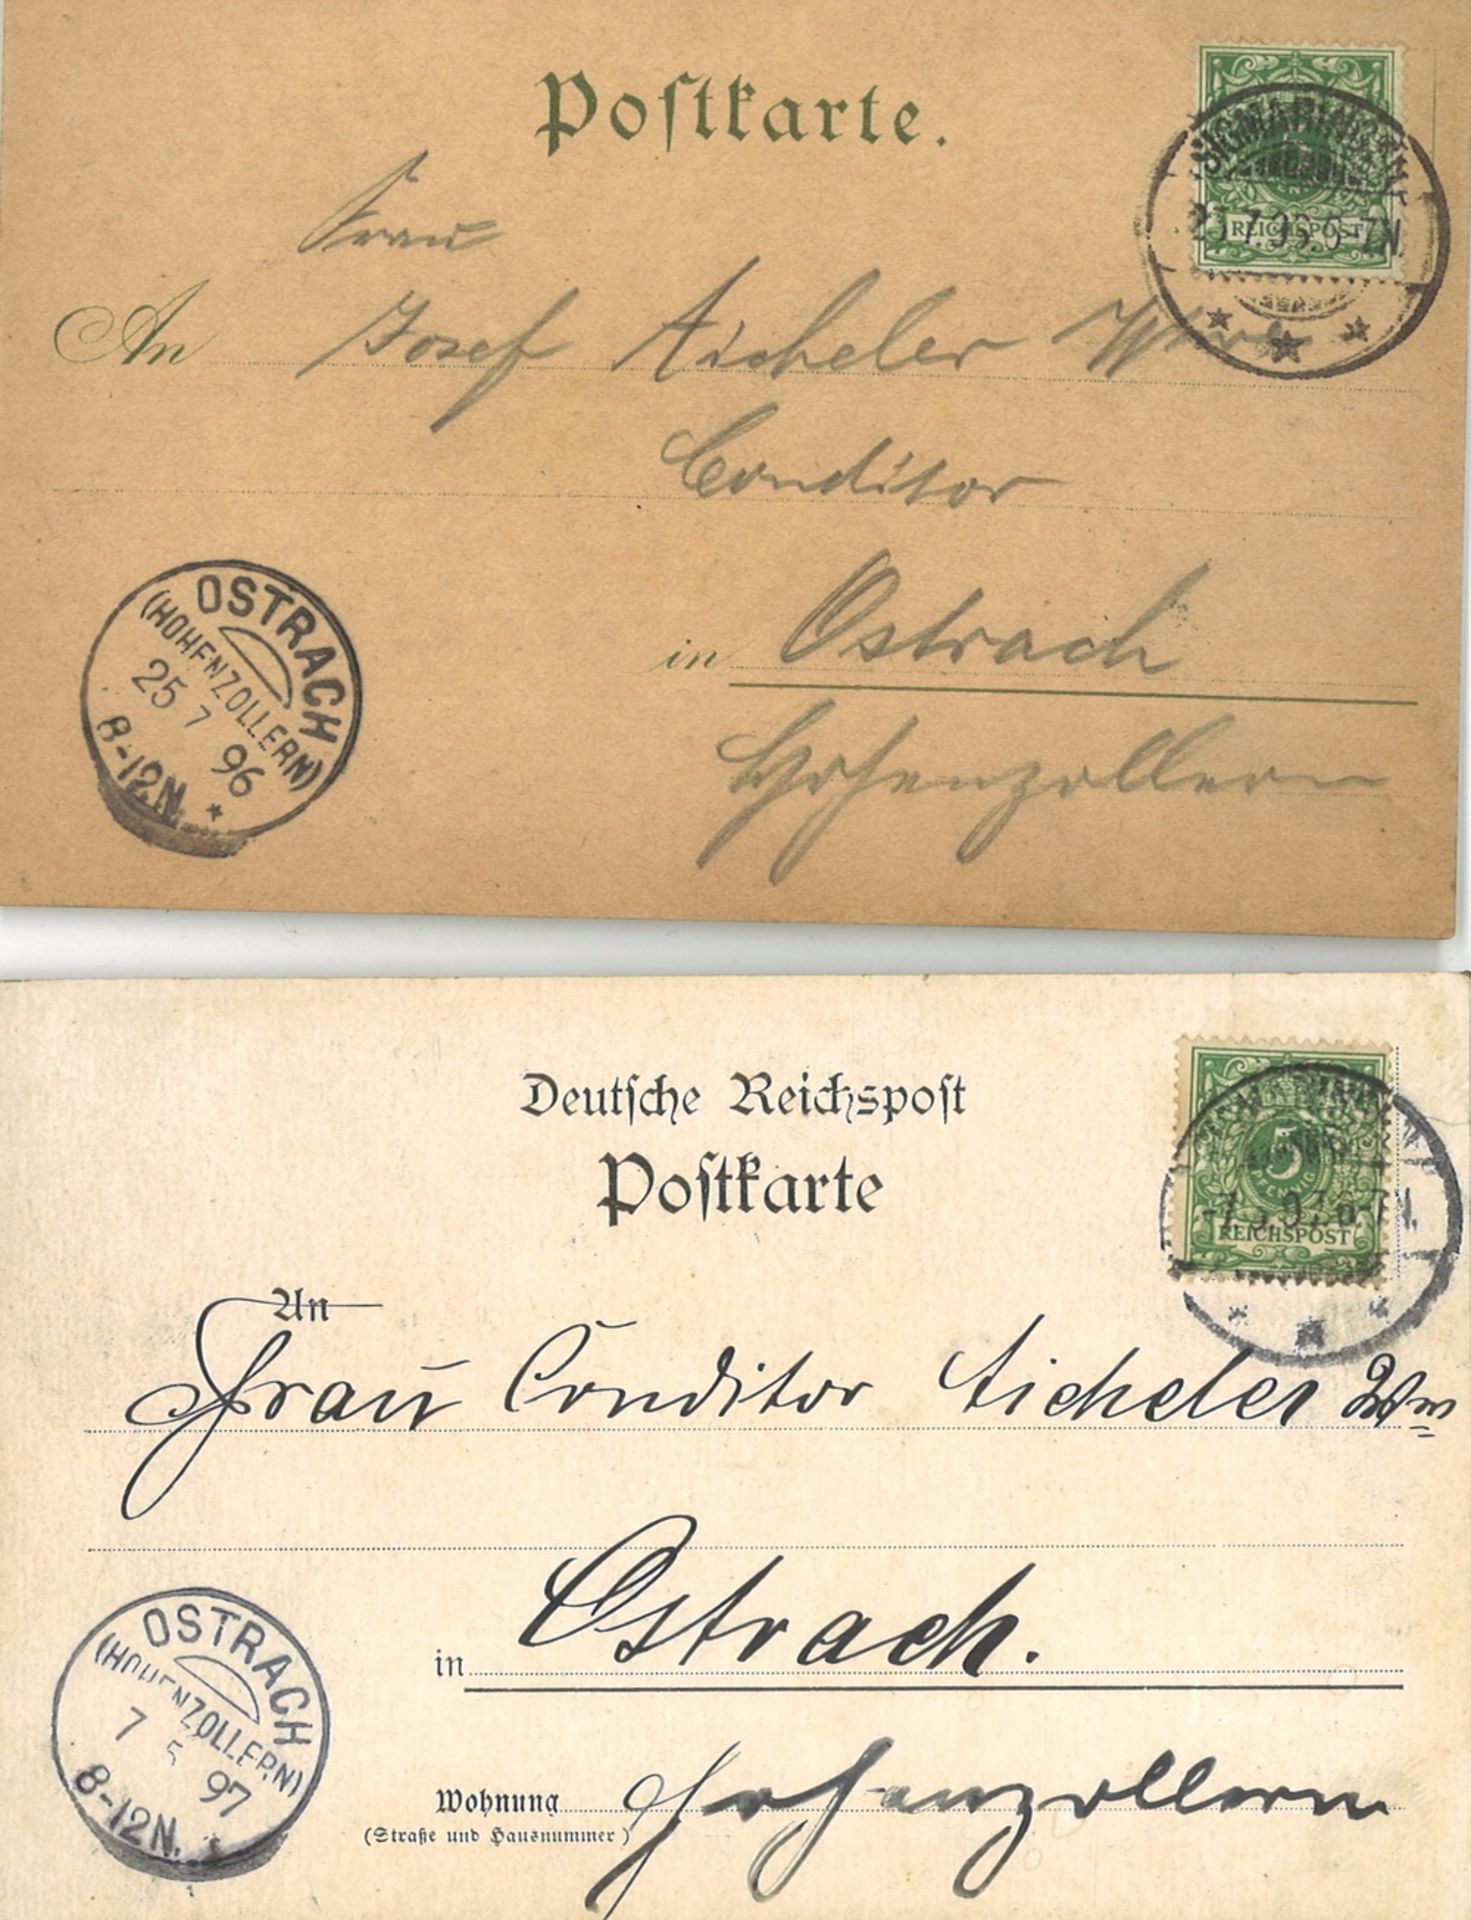 Postkarte.
SIGMARINGEN
REICHSPOST
Frau
An Josef Aicheler
Conditor
in Ostrach
Hohenzollern
OSTRACH
(HOHENZOLLERN)
25 7 96
8-12N.
Deutsche Reichspost
Postkarte
SIGMARINGEN
5
PFENNIG
REICHSPOST
-7.5.97.6-7N.
An
Frau Conditor Aicheler Ww
in Ostrach.
Wohnung Hohenzollern
(Straße und Hausnummer)
OSTRACH
(HOHENZOLLERN)
7 5 97
8-12N.